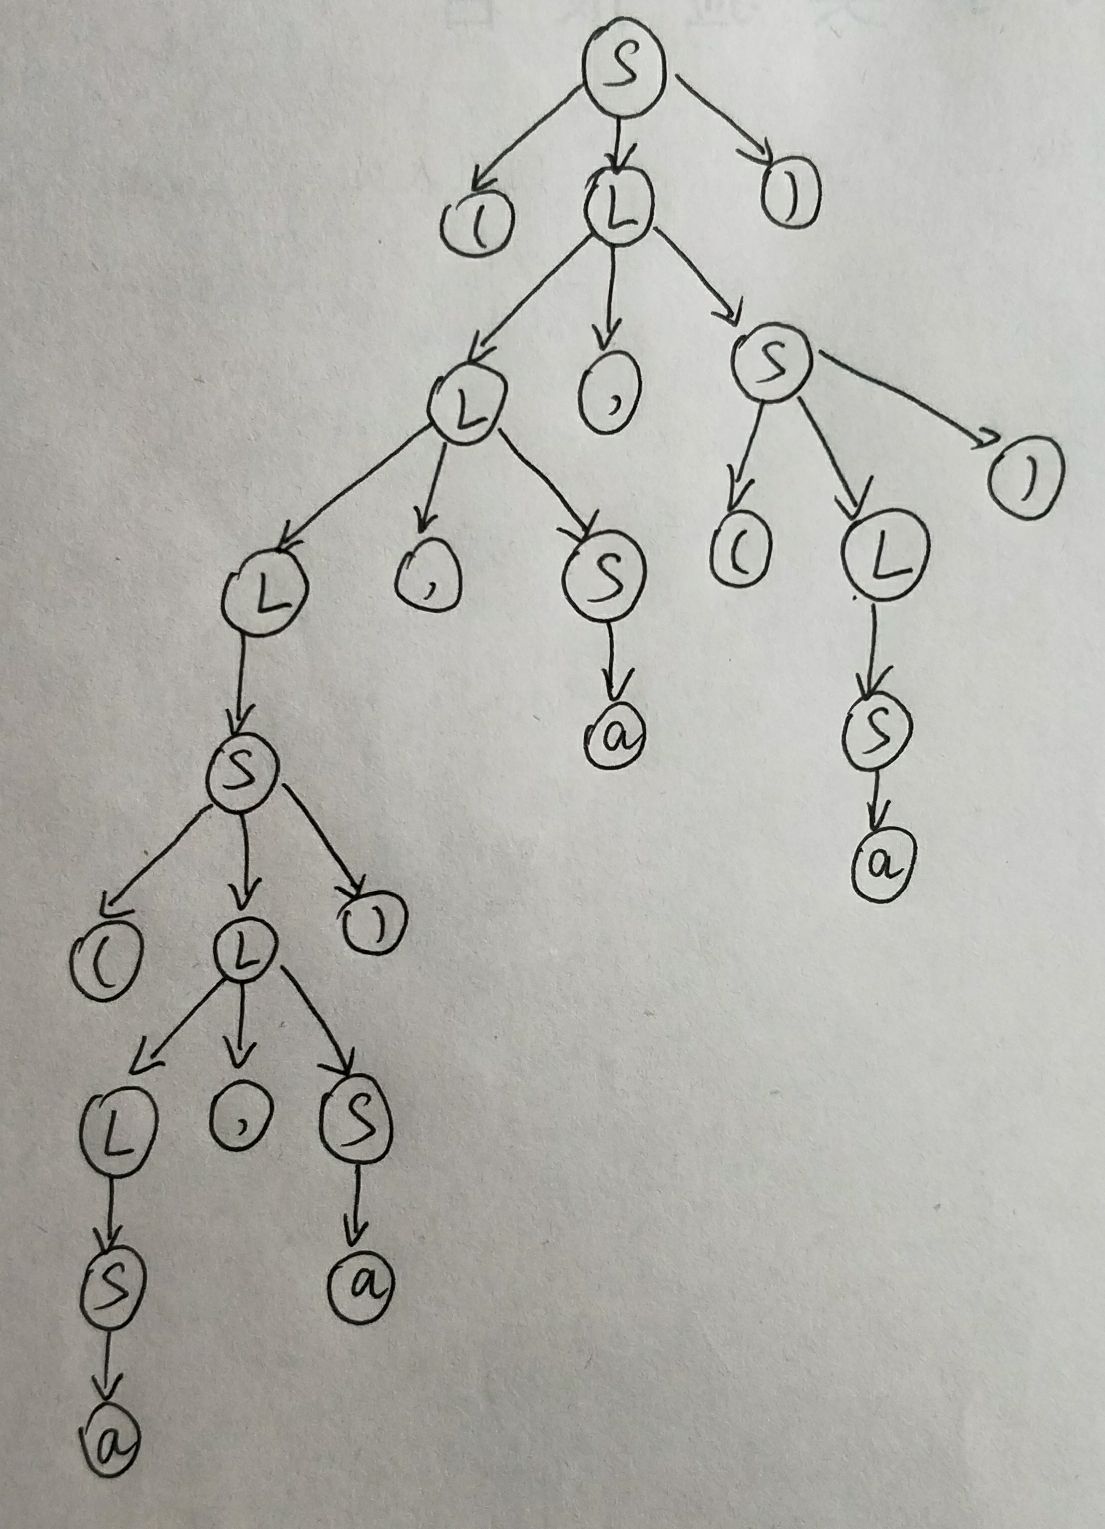 S
( L )
L , S
L , S ( L )
S a S
( L ) a
L , S
S a
a